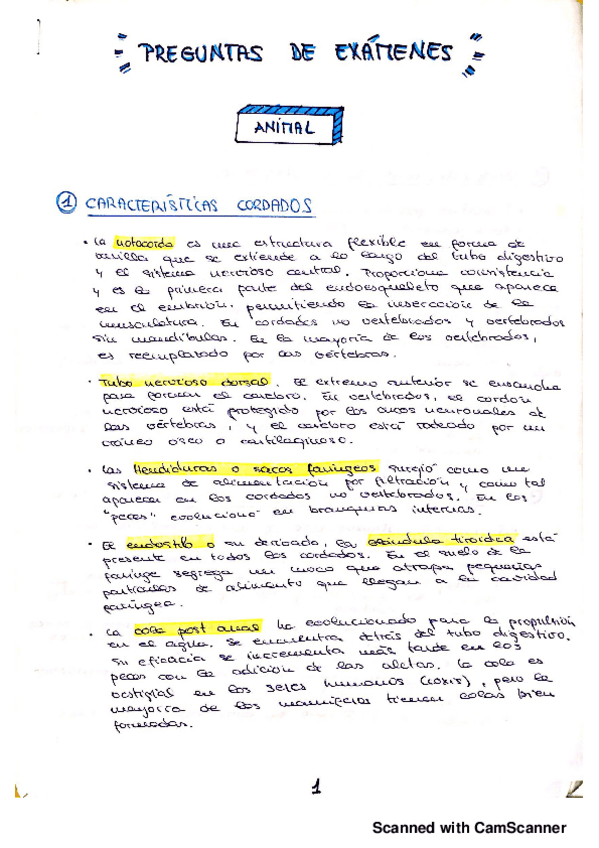 PREGUNTAS DE EXÁMENES
ANIMAL
1 CARACTERÍSTICAS CORDADOS
• La notocorda es una estructura flexible en forma de
varilla que se extiende a lo largo del tubo digestivo
y el sistema nervioso central. Proporciona consistencia
y es la primera parte del endoesqueleto que aparece
en el embrión, permitiendo la inserción de la
musculatura. En cordados no vertebrados y vertebrados
sin mandíbulas. En la mayoría de los vertebrados,
es reemplazado por las vértebras.
• Tubo nervioso dorsal. El extremo anterior se ensancha
para formar el cerebro. En vertebrados, el cordón
nervioso está protegido por los arcos neuronales de
las vértebras, y el cerebro está rodeado por un
cráneo óseo o cartilaginoso.
• Las Hendiduras o sacos faríngeos surgió como un
sistema de alimentación por filtración y como tal
aparecen en los cordados no vertebrados. En los
"peces" evolucionó en branquias internas.
• El endostilo o su derivado, la glándula tiroidea está
presente en todos los cordados. En el suelo de la
faringe segrega un moco que atrapa pequeñas
partículas de alimento que llegan a la cavidad
faríngea.
• La cola post anal ha evolucionado para la propulsión
en el agua. Se encuentra detrás del tubo digestivo.
Su eficacia se incrementa más tarde en los
peces con la adición de las aletas. La cola es
vestigial en los seres humanos (coxis), pero la
mayoría de los mamíferos tienen colas bien
formadas.
1
Scanned with CamScanner